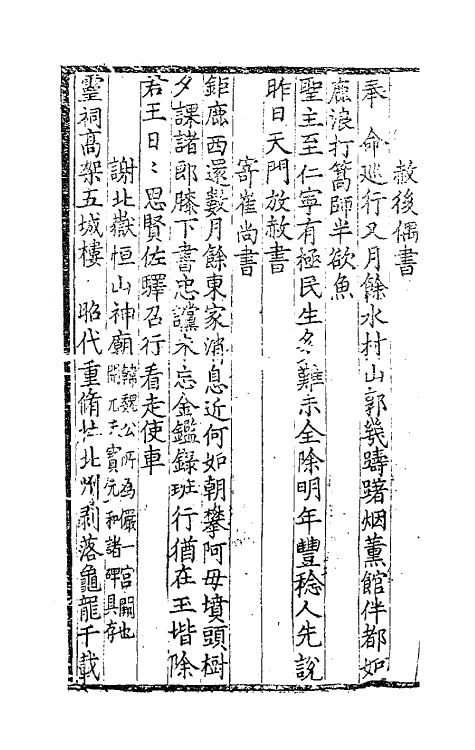 赦後偶書
奉 命廵行又月餘水村山郭幾躊躇烟薰館伴都如
鹿浪打篙師半欲魚
聖主至仁寧有極民生多難未全除明年豐稔人先說
昨日天門放赦書
寄崔尚書
鉅鹿西還數月餘東家消息近何如朝攀阿母墳頭樹
夕課諸郎膝下書忠讜未忘金鑑錄班行猶在玉堦除
君王日〻思賢佐驛召行看走使車
謝北嶽恒山神廟韓魏公所為儼一宮闕也
開元天寶元和諸碑具存
靈祠高架五城樓 昭代重脩壮北州剥落龜龍千載